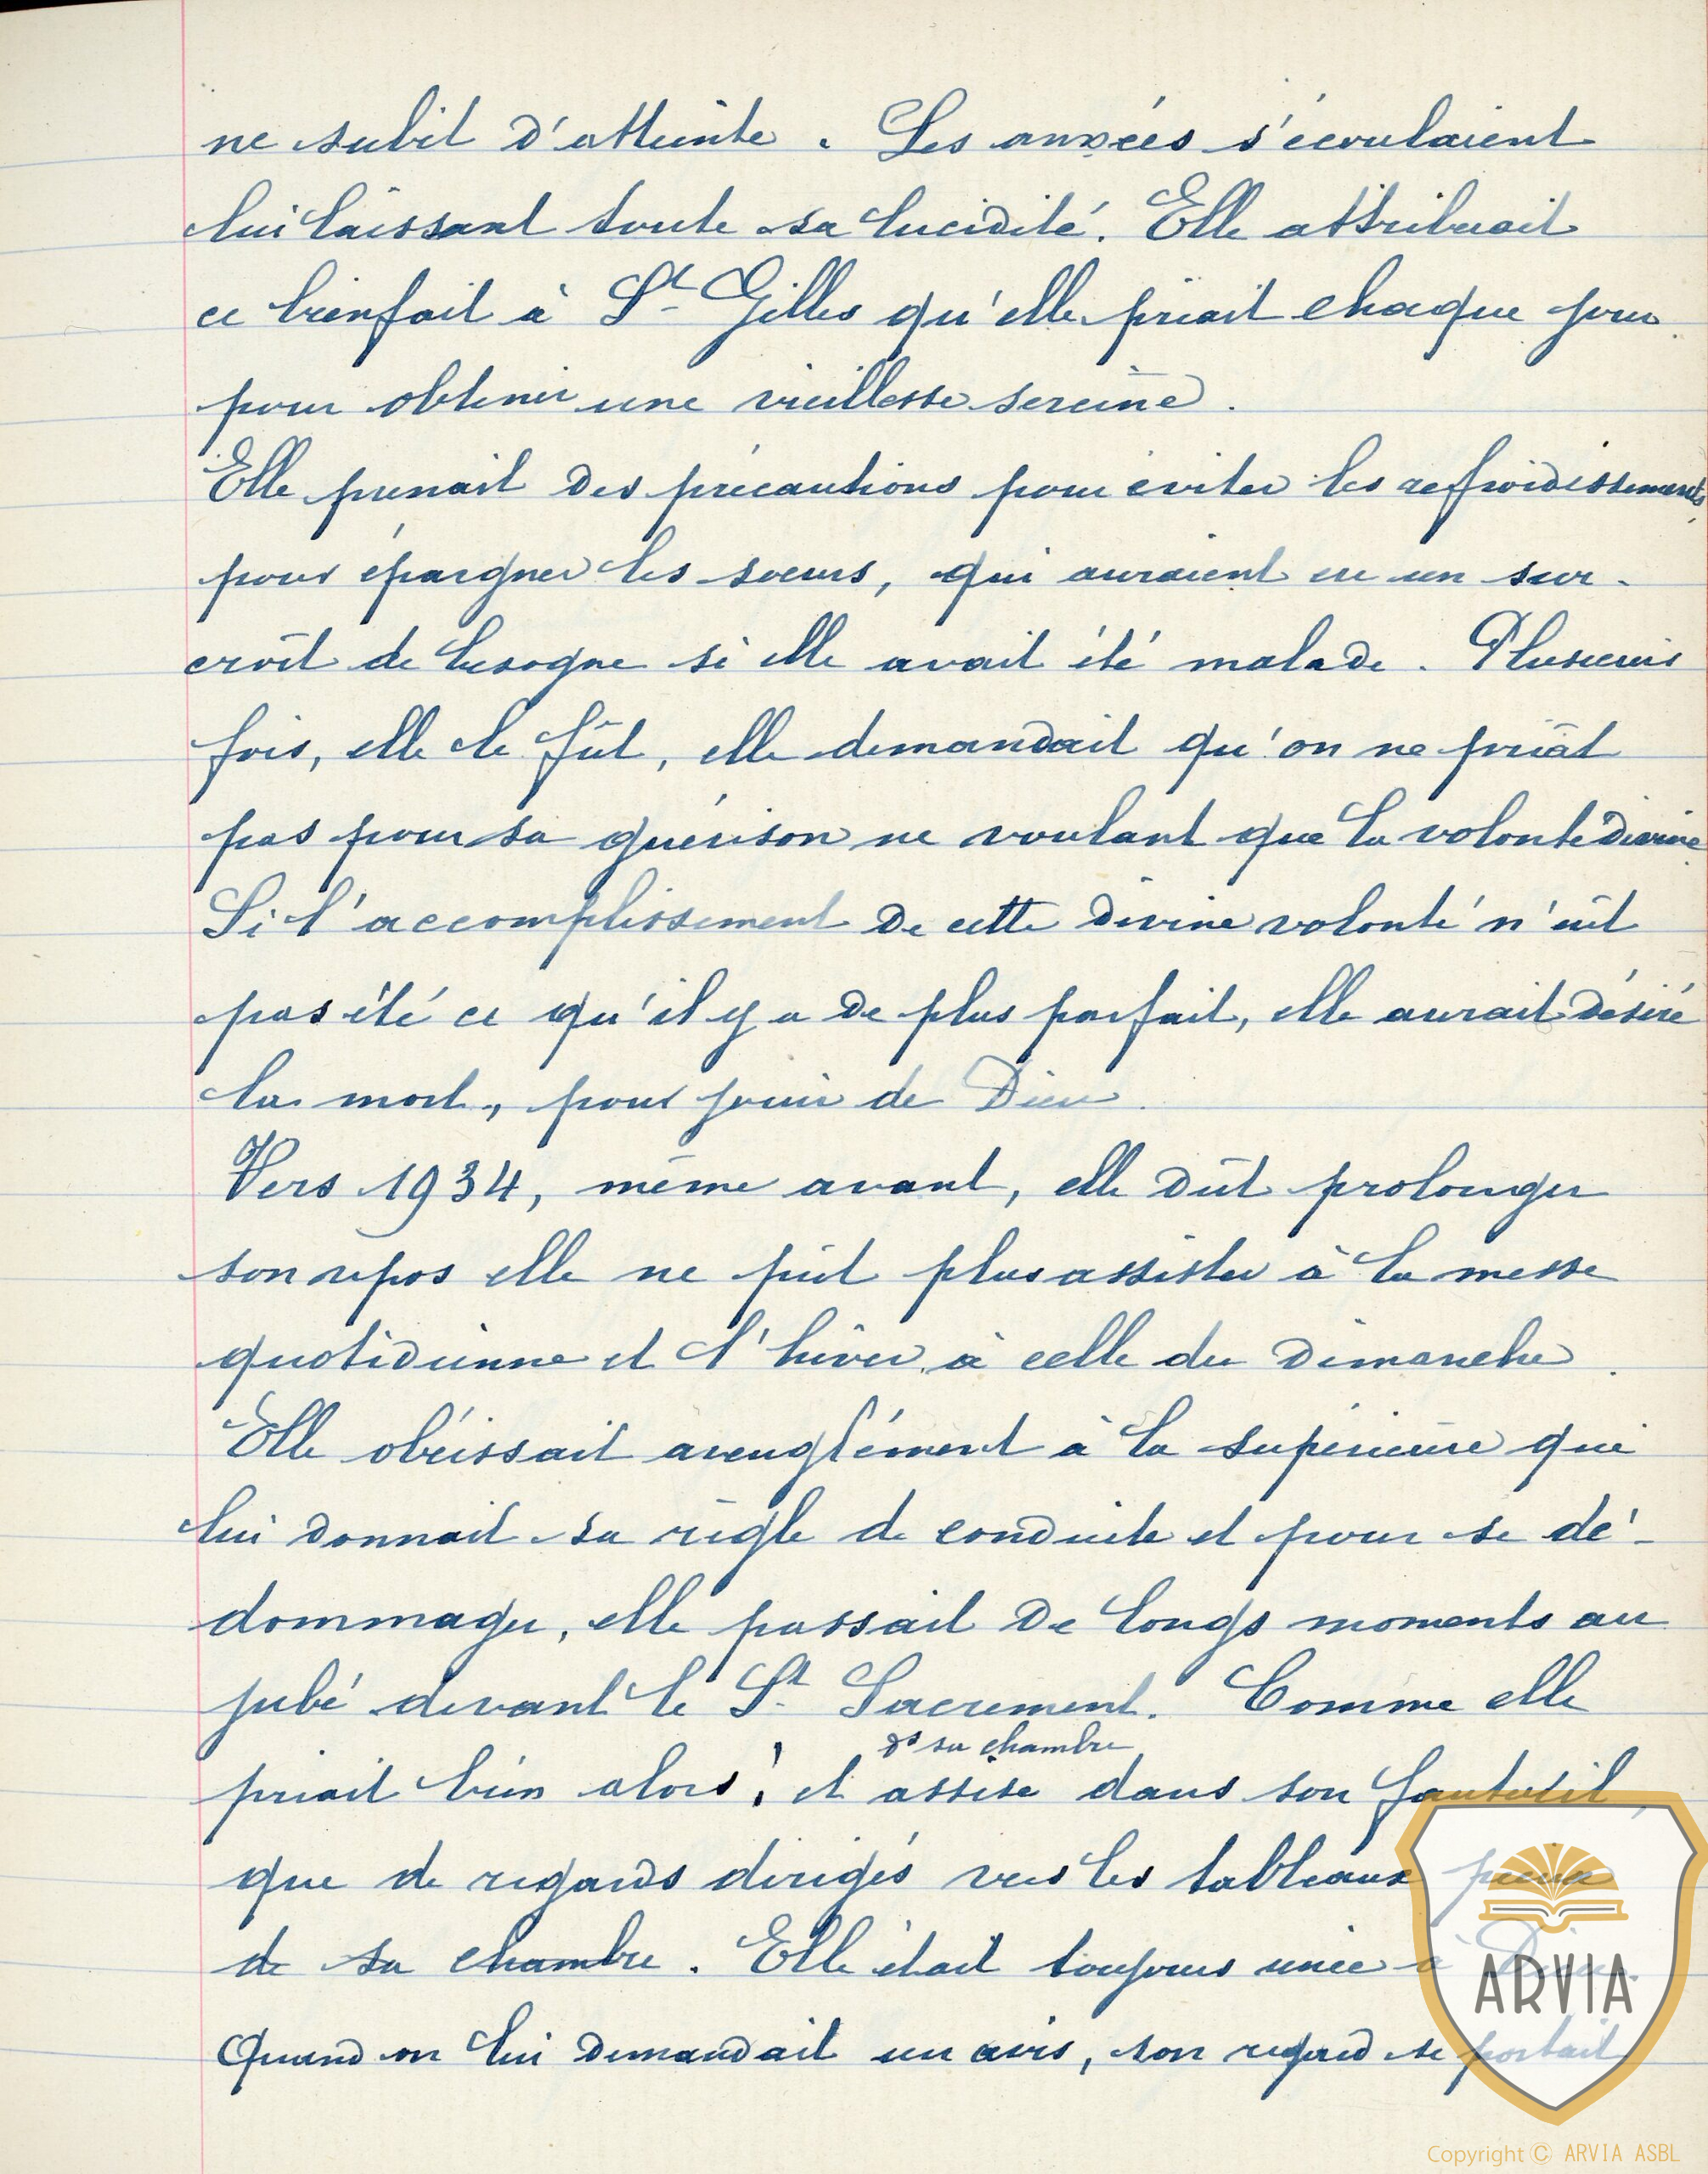 ne subit d'atteinte. Les années s'écoulaient
lui laissant toute sa lucidité. Elle attribuait
ce bienfait à St Gilles qu'elle priait chaque jour
pour obtenir une vieillesse sereine.
Elle prenait des précautions pour éviter les refroidissements
pour épargner les soeurs, qui auraient eu un sur-
croît de besogne si elle avait été malade. Plusieurs
fois, elle le fût, elle demandait qu'on ne priât
pas pour sa guérison ne voulant que la volonté divine
Si l'accomplissement de cette divine volonté n'eût
pas été ce qu'il y a de plus parfait, elle aurait désiré
la mort, pour jouir de Dieu.
Vers 1934, même avant, elle dût prolonger
son repos elle ne pût plus assister à la messe
quotidienne et l'hiver à celle du dimanche.
Elle obéissait aveuglément à la supérieure qui
lui donnait sa règle de conduite et pour se dé-
dommager, elle passait de longs moments au
jubé devant le St Sacrement. Comme elle
ds sa chambre
priait bien alors! et assise dans son fauteuil,
que de regards dirigés vers les tableaux pieux
de sa chambre. Elle était toujours unie à Dieu.
Quand on lui demandait un avis, son regard se portait
ARVIA
Copyright © ARVIA ASBL